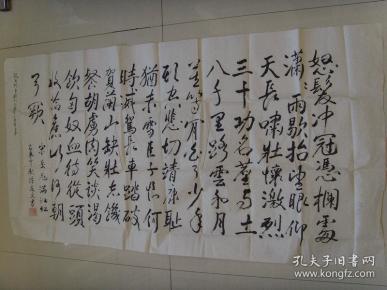 怒髮冲冠憑欄處
瀟瀟雨歇抬望眼仰
天長嘯壯懷激烈
三十功名塵与土
八千里路雲和月
莫等閑白了少年
頭空悲切靖康耻
猶未雪臣子恨何
時滅駕長車踏破
賀蘭山缺壯志饑
餐胡虜肉笑談渴
飲匈奴血待從頭
收拾舊山河朝
天闕
岳飛滿江紅
孔夫子旧书网